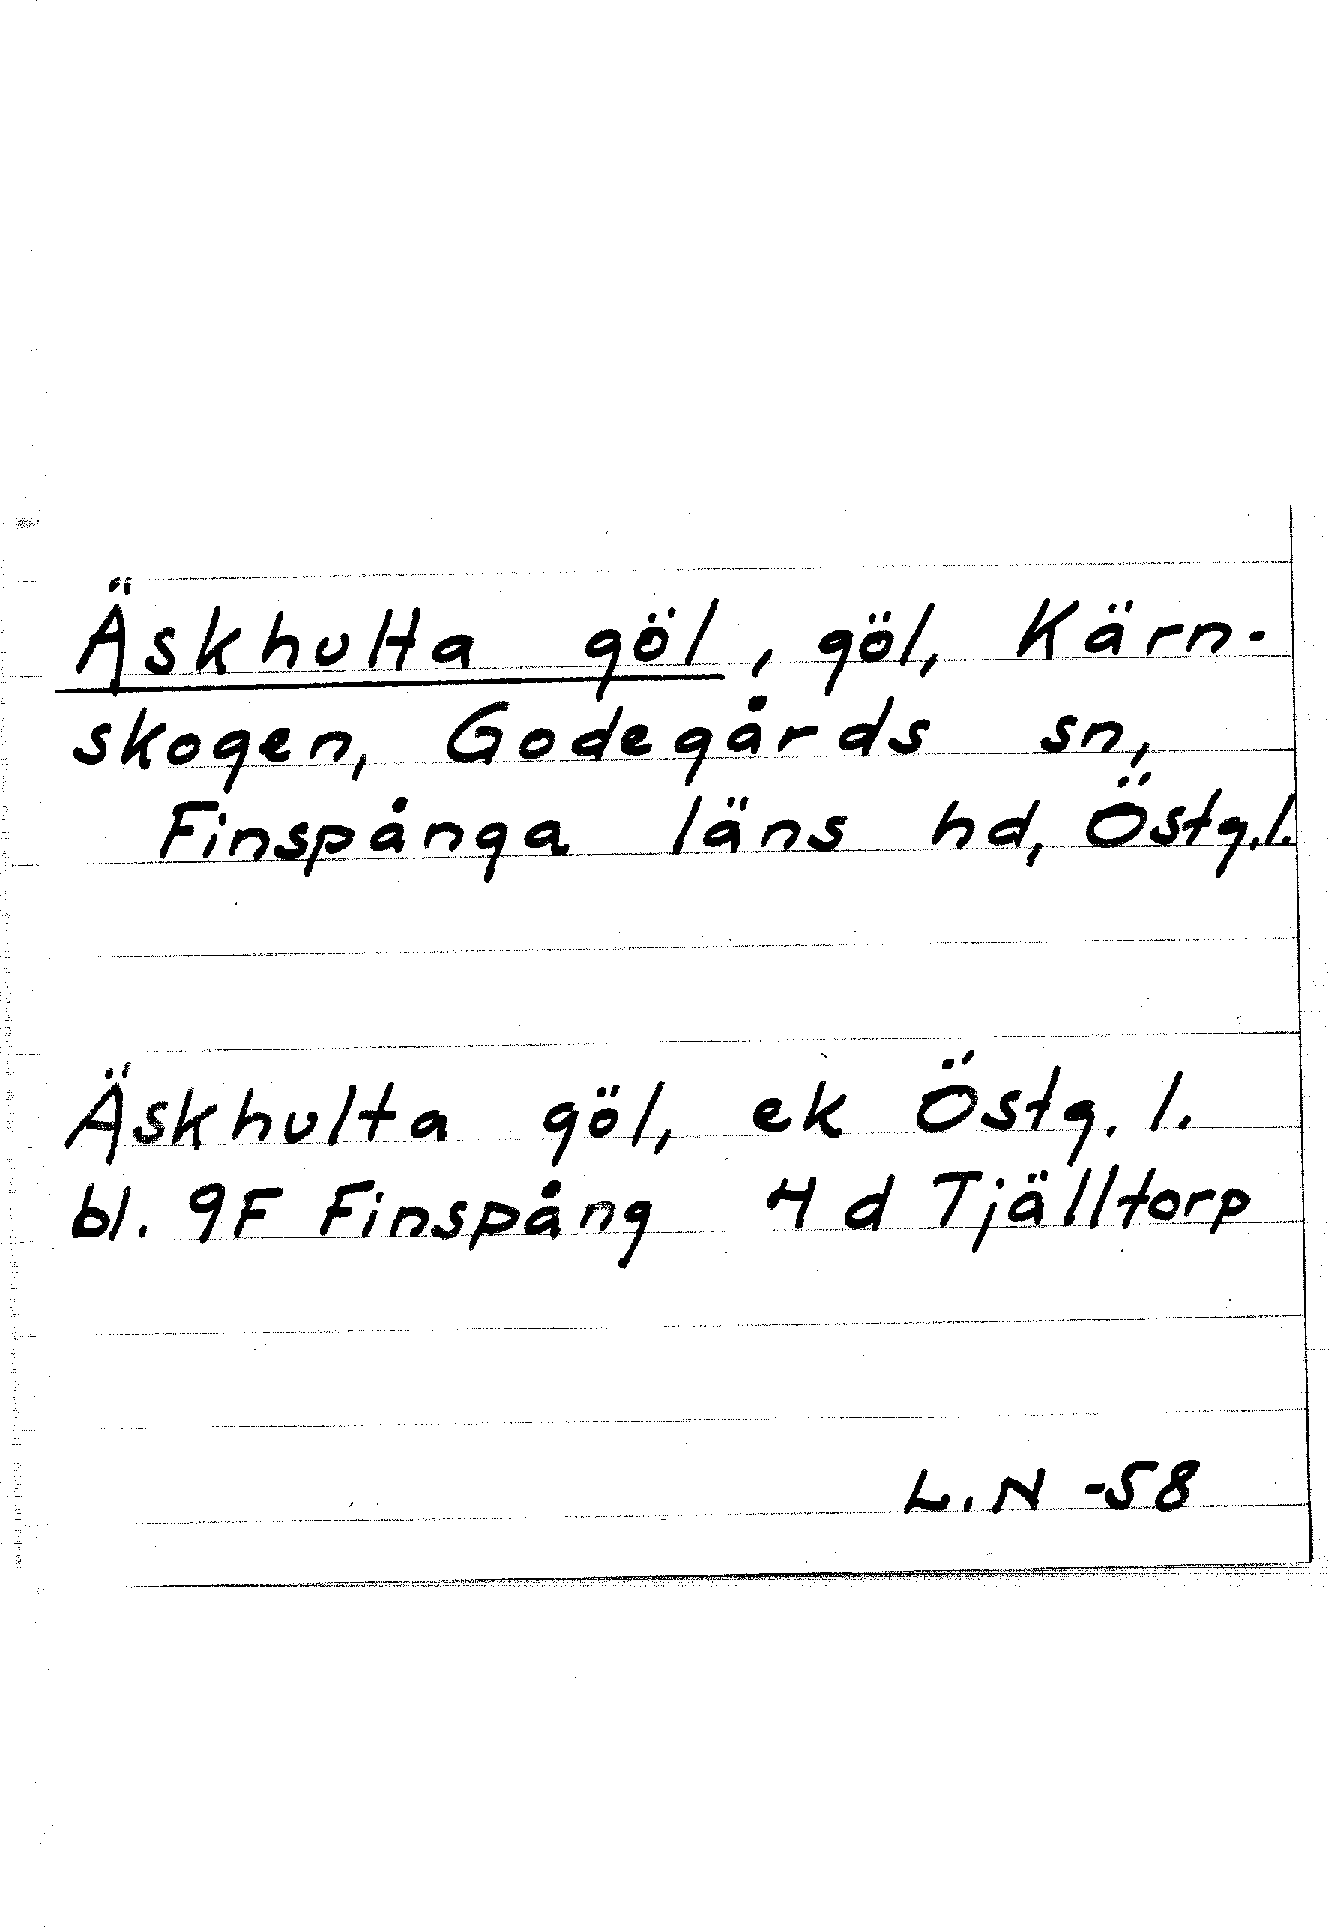 Äskhulta göl, göl, Kärn-
skogen, Godegårds sn,
Finspånga läns hd, Östg.l.
Äskhulta göl, ek Östg. l.
bl. 9F Finspång 4 d Tjälltorp
L.N -58